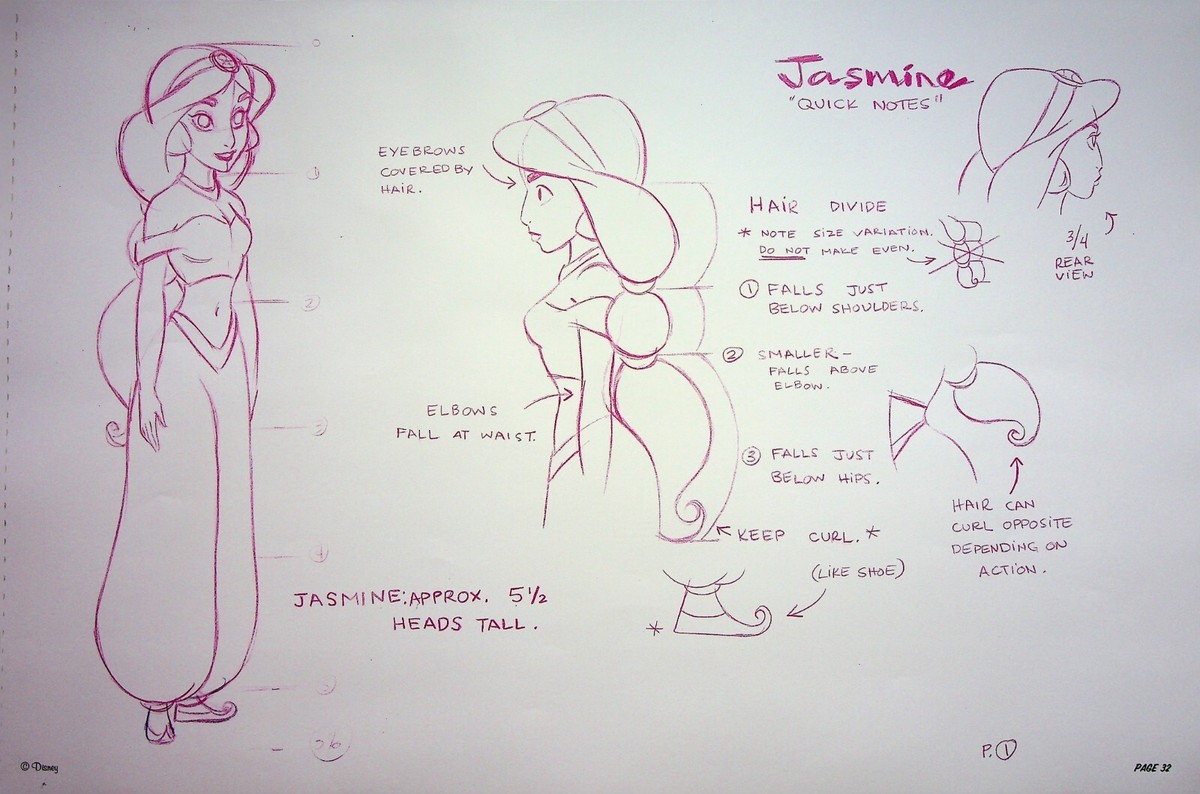 Jasmine
"QUICK NOTES"
EYEBROWS
COVERED BY
HAIR.
HAIR DIVIDE
* NOTE SIZE VARIATION.
DO NOT MAKE EVEN.
3/4
REAR
VIEW
① FALLS JUST
BELOW SHOULDERS.
② SMALLER-
FALLS ABOVE
ELBOW.
ELBOWS
FALL AT WAIST.
③ FALLS JUST
BELOW HIPS.
KEEP CURL. *
(LIKE SHOE)
*
HAIR CAN
CURL OPPOSITE
DEPENDING ON
ACTION.
0
1
2
3
4
5
5½
JASMINE: APPROX. 5 1/2
HEADS TALL.
P. ①
© Disney
PAGE 32